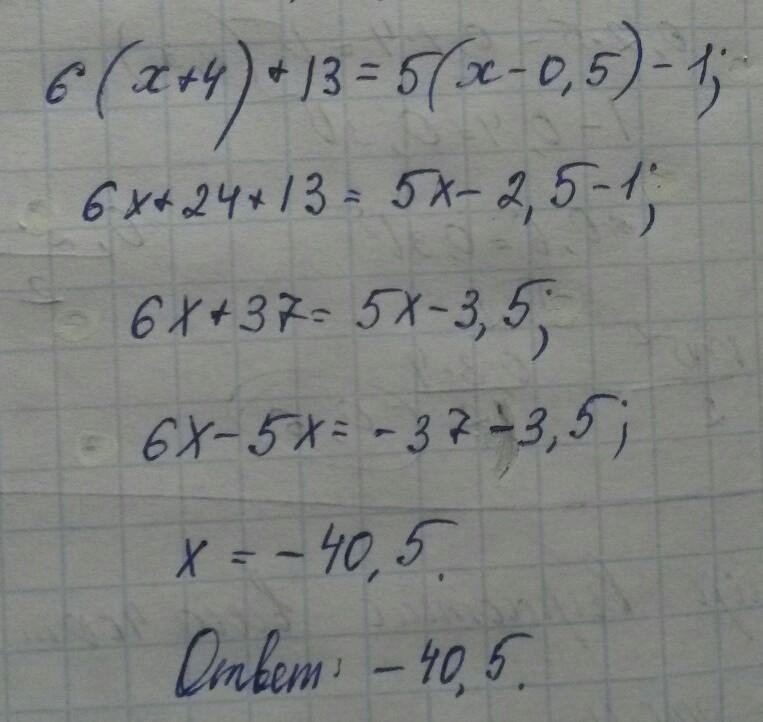 6(x+4)+13=5(x-0,5)-1;
6x+24+13=5x-2,5-1;
6x+37=5x-3,5;
6x-5x=-37-3,5;
x=-40,5.
Ответ: -40,5.